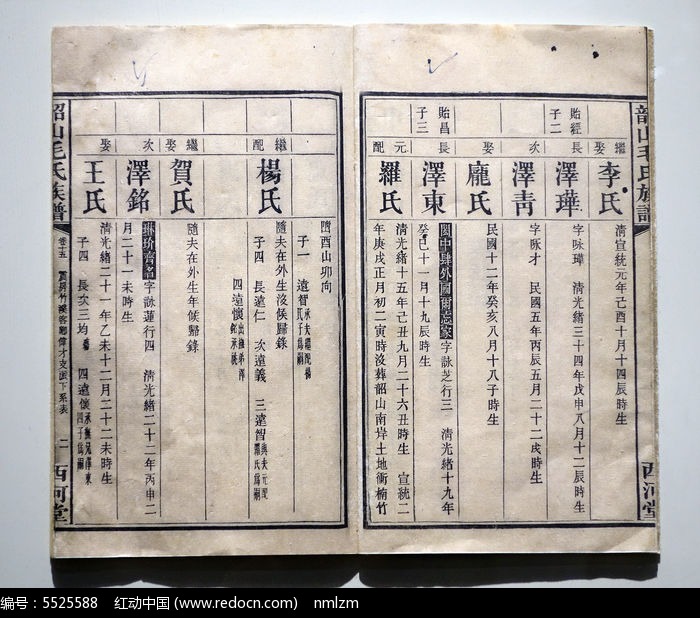 韶山毛氏族譜
西河堂
繼娶
李氏
清宣統元年己酉十月十四辰時生
貽經長子二
澤華
字咏瑋 清光緒三十四年戊申八月十二辰時生
次
澤青
字咏才 民國五年丙辰五月二十二戌時生
娶
龐氏
民國十二年癸亥八月十八子時生
貽昌長子三
澤東
閫中肆外國爾忘家字詠芝行三 清光緒十九年
癸巳十一月十九辰時生
元配
羅氏
清光緒十五年己丑九月二十六丑時生 宣統二
年庚戌正月初二寅時沒葬韶山南岸土地衝楠竹
酉山卯向
子一 遠智
繼配
楊氏
隨夫在外生沒候歸錄
子四 長遠仁 次遠義 三遠智
四遠懷
繼娶
賀氏
隨夫在外生年候歸錄
次
澤銘
字詠蓮行四 清光緒二十二年丙申二
月二十一未時生
娶
王氏
清光緒二十一年乙未十二月二十二未時生
子四 長次三均 四遠懷
韶山毛氏族譜
卷十五
二
西河堂
编号：5525588 红动中国 (www.redocn.com) nmlzm